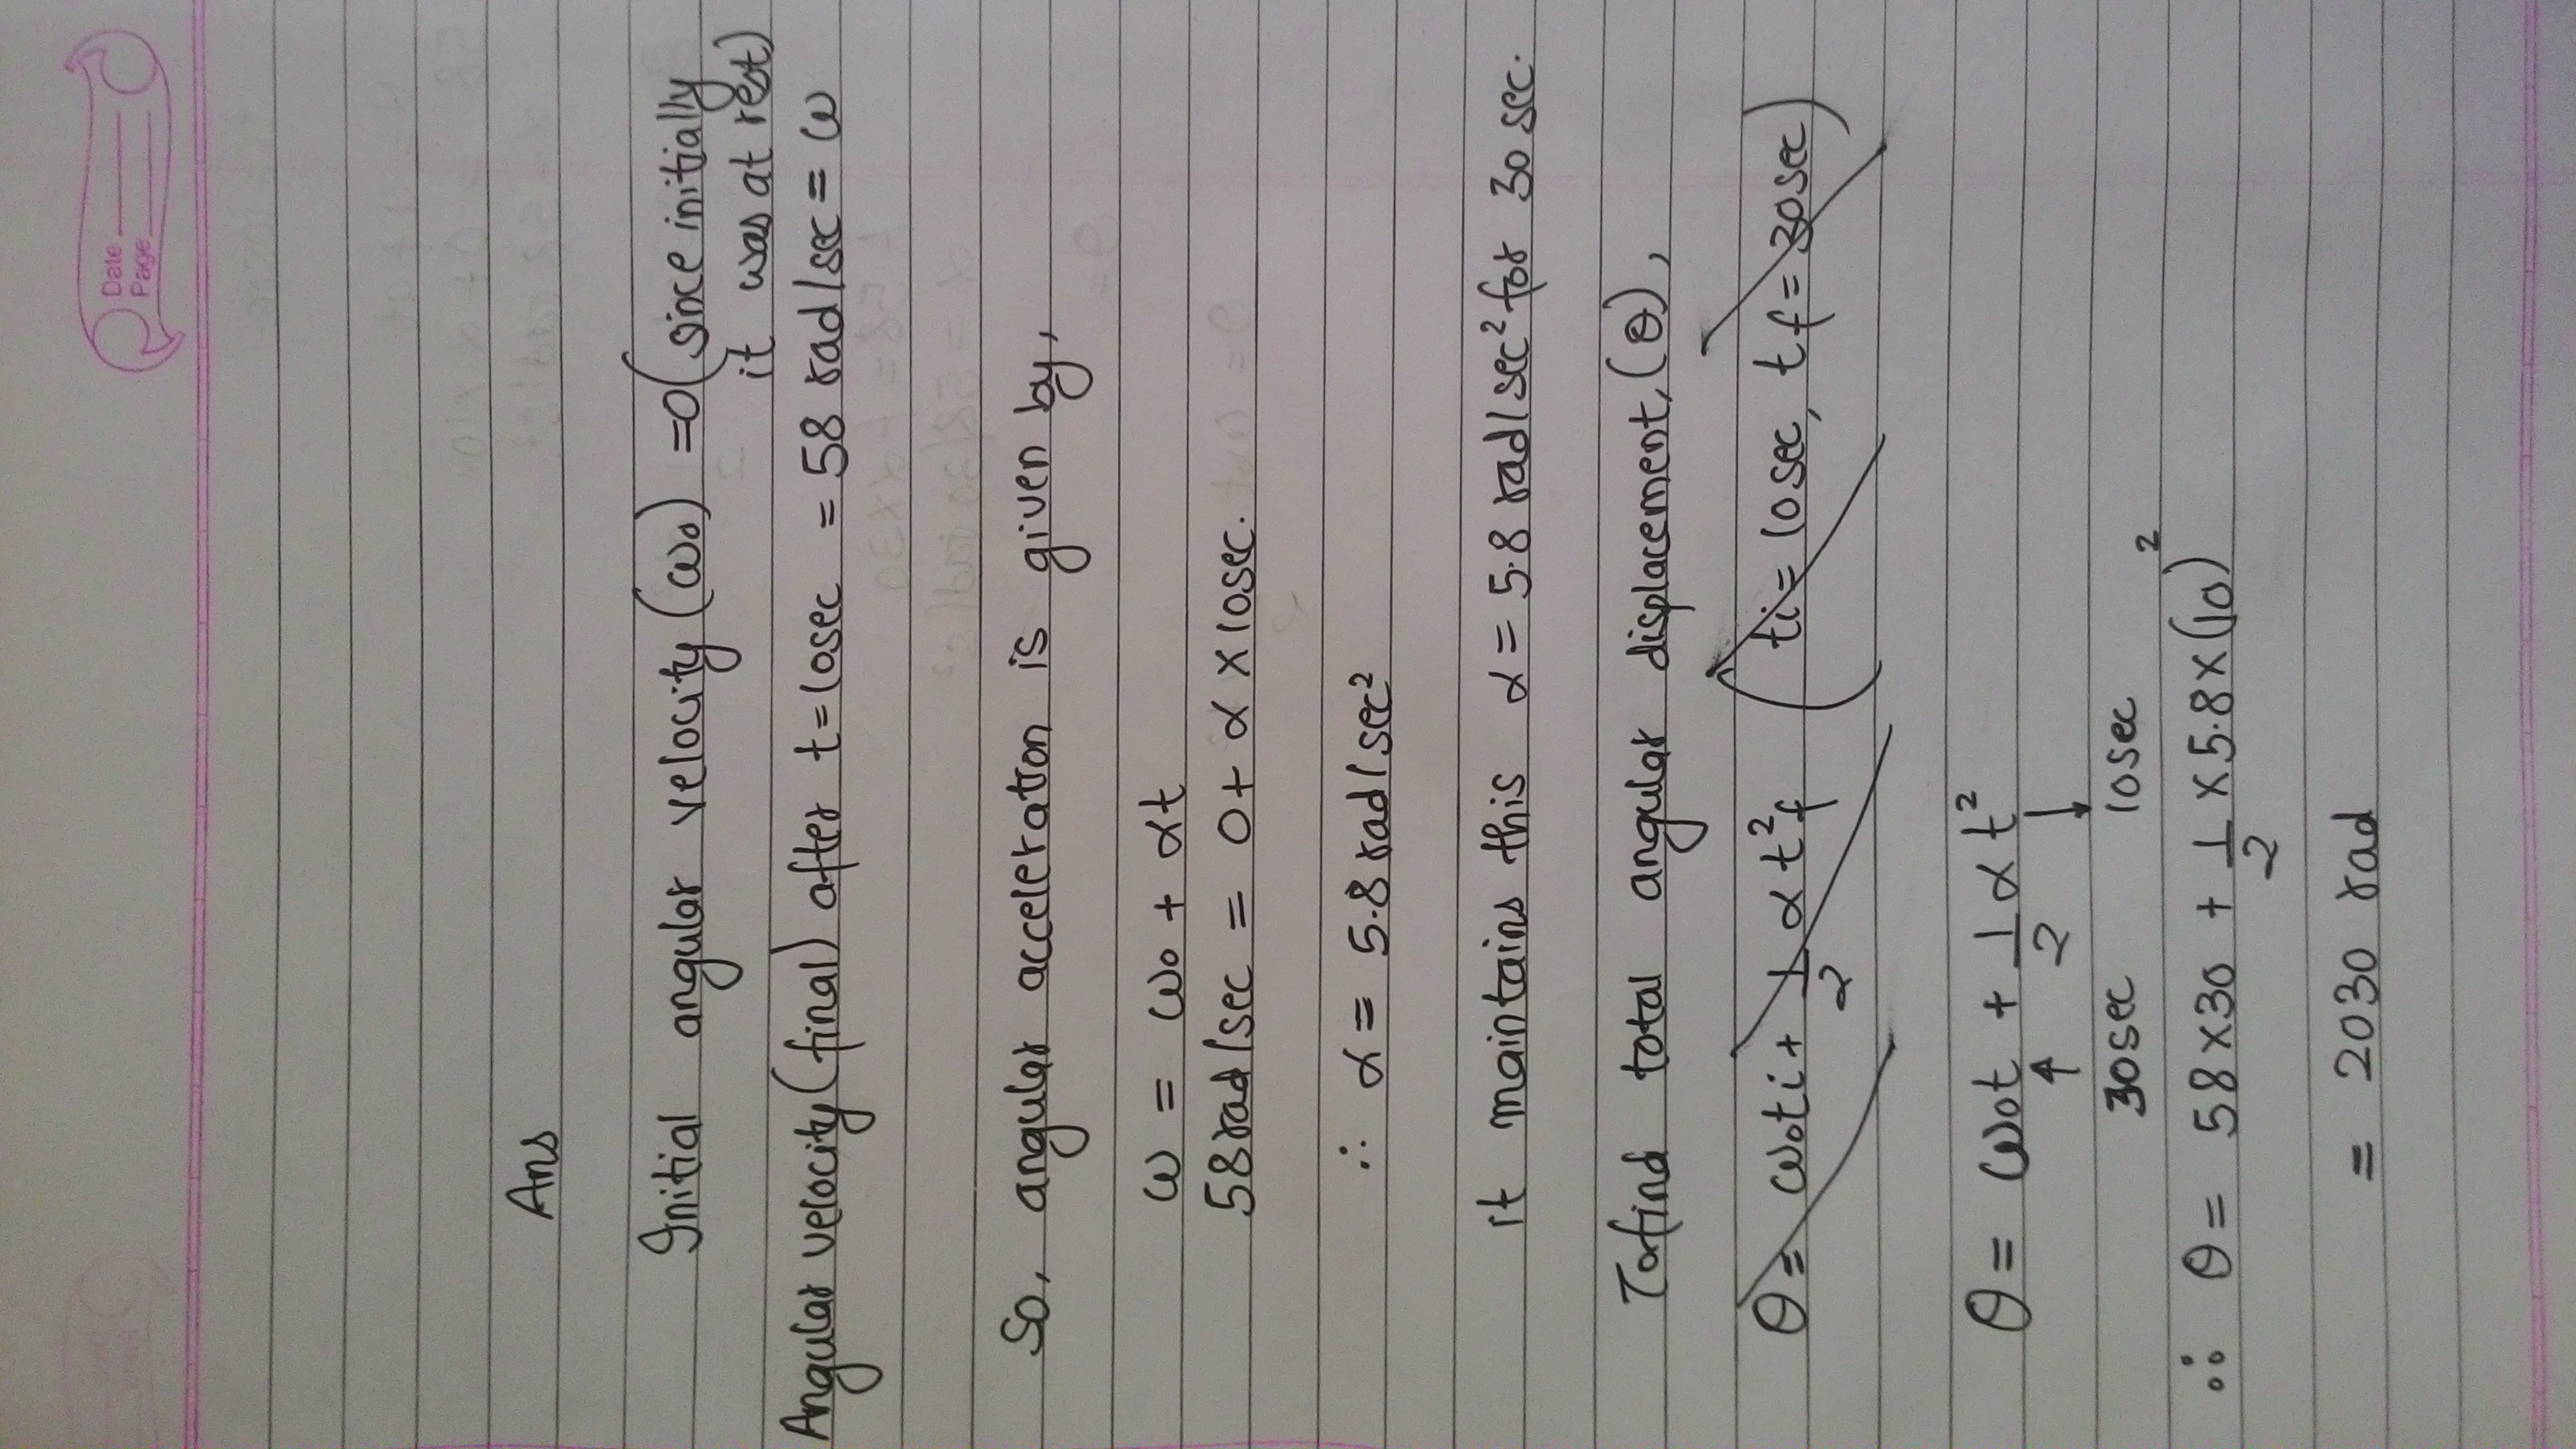 Date
Page
Ans
Initial angular velocity (ω₀) = 0 (since initially
it was at rest)
Angular velocity (final) after t = 10sec = 58 rad/sec = ω
So, angular acceleration is given by,
ω = ω₀ + αt
58 rad/sec = 0 + α × 10sec.
∴ α = 5.8 rad/sec²
it maintains this α = 5.8 rad/sec² for 30 sec.
To find total angular displacement, (θ),
θ = ω₀ti + 1/2 α t²f (ti = 10sec, tf = 30sec)
θ = ω₀t + 1/2 αt²
30sec 10sec
∴ θ = 58 × 30 + 1/2 × 5.8 × (10)²
= 2030 rad